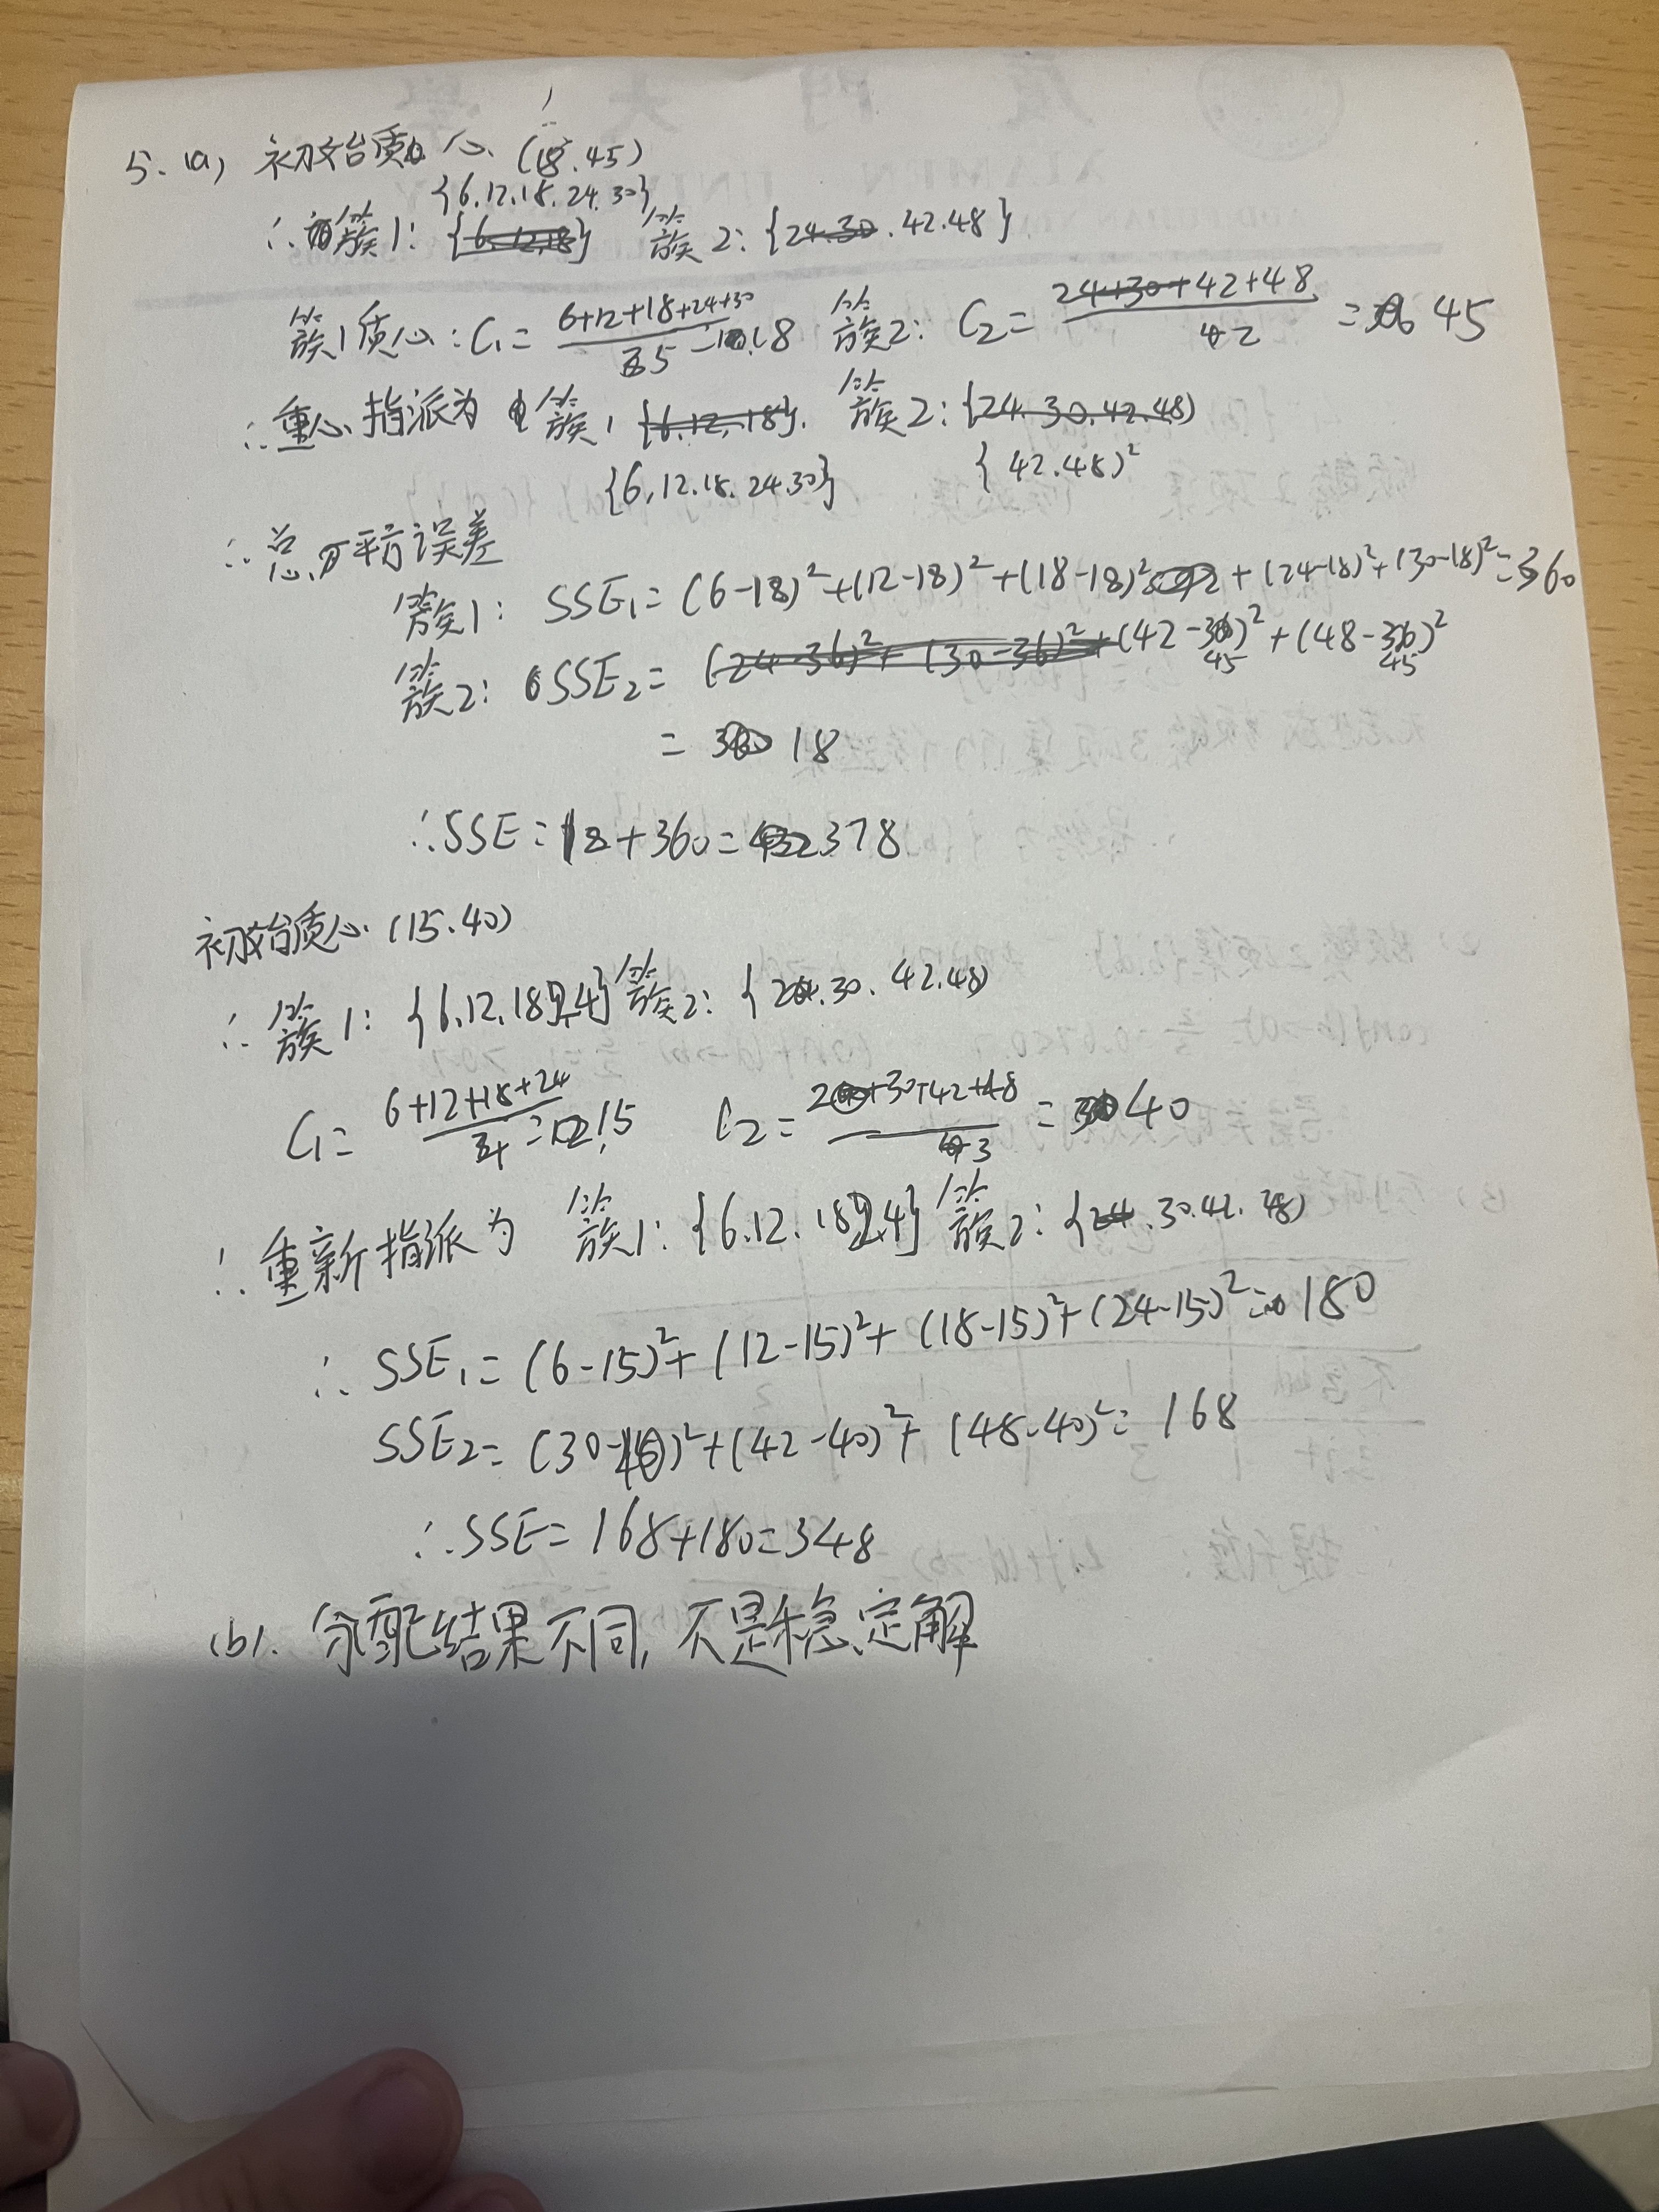 5. (a) 初始质心 (18.45)
{6.12.18.24.30}
∴ 簇1: {6.12.18} 簇2: {24.30.42.48}
簇1质心: C₁= (6+12+18+24+30)/5 = 18 簇2: C₂= (24+30+42+48)/2 = 45
∴重心指派为 簇1 {6.12.18}. 簇2: {24.30.42.48}
{6,12.18.24.30} {42.48}²
∴总平方误差
簇1: SSE₁= (6-18)²+(12-18)²+(18-18)²+(24-18)²+(30-18)²=360
簇2: SSE₂= (24-36)²+(30-36)²+(42-45)²+(48-45)²
= 18
∴SSE=18+360=378
初始质心 (15.40)
∴ 簇1: {6.12.18.24} 簇2: {30.42.48}
C₁= (6+12+18+24)/4 =15 C₂= (30+42+48)/3 = 40
∴重新指派为 簇1: {6.12.18.24} 簇2: {24.30.42.48}
∴ SSE₁= (6-15)²+(12-15)²+(18-15)²+(24-15)²=180
SSE₂= (30-40)²+(42-40)²+(48-40)²= 168
∴SSE=168+180=348
(b). 分配结果不同, 不是稳定解